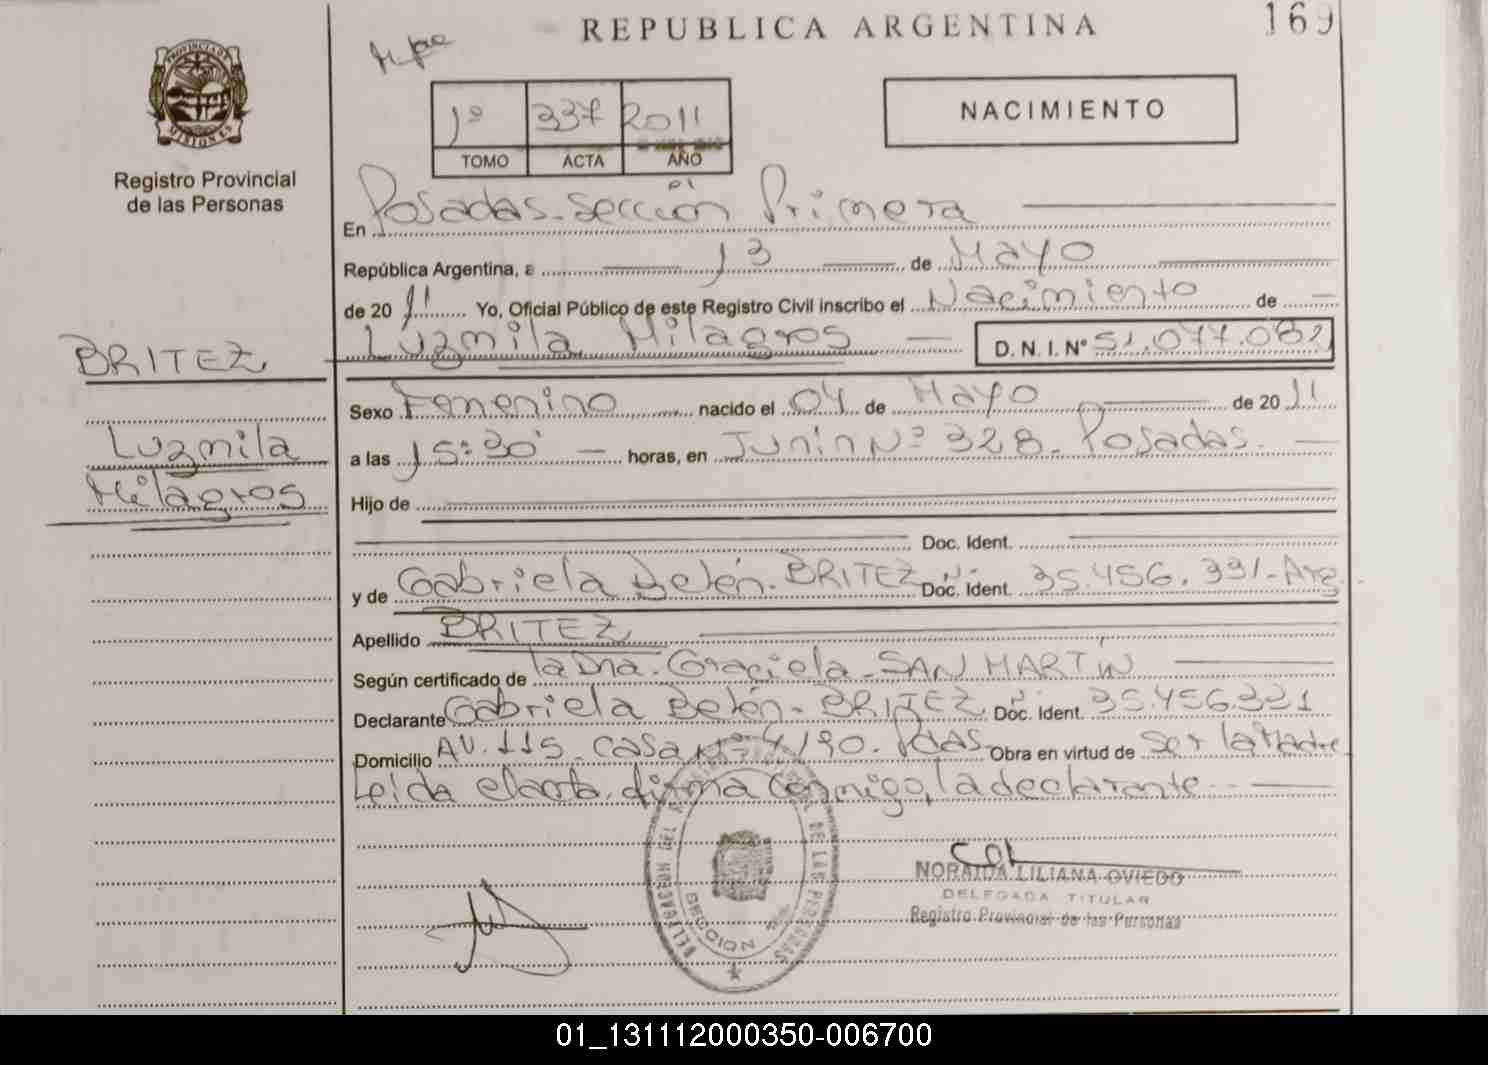 REPUBLICA ARGENTINA
169
PROVINCIA DE MISIONES
Registro Provincial
de las Personas
1º 337 2011
TOMO ACTA AÑO
NACIMIENTO
En Posadas-Sección Primera
República Argentina, a 13 de Mayo
de 2011 Yo, Oficial Público de este Registro Civil inscribo el Nacimiento de
Luzmila Milagros D. N. I. Nº 51.077.082
BRITEZ
Luzmila
Milagros
Sexo Femenino nacido el 04 de Mayo de 2011
a las 15:30 horas, en Junin Nº 328. Posadas.
Hijo de
Doc. Ident.
y de Gabriela Belén. BRITEZ Doc. Ident. 35.456.331-Arg.
Apellido BRITEZ
Según certificado de la Dra. Graciela SAN MARTÍN
Declarante Gabriela Belén. BRITEZ Doc. Ident. 35.456.331
Domicilio AV. 115. casa Nº 4190. Pdas. Obra en virtud de Ser la Madre
Leída el acta. firma conmigo, la declarante
NORAIDA LILIANA OVIEDO
DELEGADA TITULAR
Registro Provincial de las Personas
SECCION
01_131112000350-006700